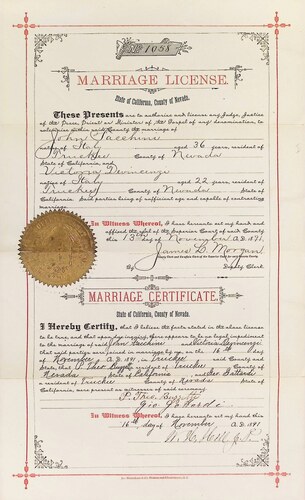 No 1058
MARRIAGE LICENSE.
State of California, County of Nevada.
These Presents are to authorize and license any Judge, Justice
of the Peace, Priest or Minister of the Gospel of any denomination, to
solemnize within said County the marriage of
John
native of Italy aged 36 years, resident of
Truckee County of Nevada
State of California, and
Victoria
native of Italy aged 22 years, resident of
Truckee County of Nevada State of
California. Said parties being of sufficient age and capable of contracting
marriage.
In Witness Whereof, I have hereunto set my hand and
affixed the seal of the Superior Court of said County
this 13th day of November A.D. 1891.
James D. Morgan
By Deputy Clerk.
MARRIAGE CERTIFICATE.
State of California, County of Nevada.
I Hereby Certify, that I believe the facts stated in the above license
to be true, and that upon due inquiry there appears to be no legal impediment
to the marriage of said and Victoria
that said parties were joined in marriage by me, on the 16 day
of November A.D. 1891, in Truckee said County and
State, that P. Theo a resident of Truckee County of
Nevada State of California and Geo
a resident of Truckee County of Nevada State of
California, were present as witnesses of said ceremony.
P. Theo
Geo
In Witness Whereof, I have hereunto set my hand this
16th day of November A.D. 1891